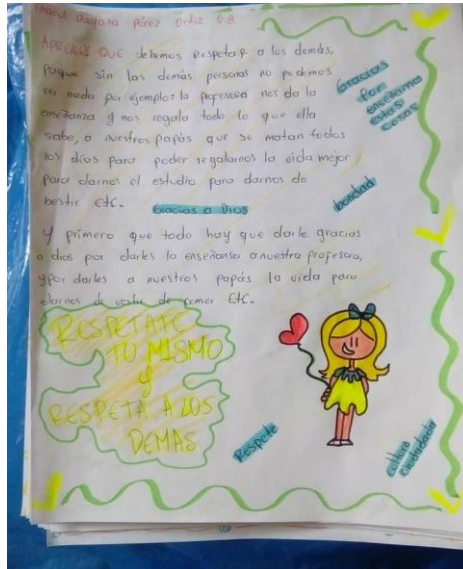 Sharid Dayana Pérez Ortiz 6-3
APRENDI QUE debemos respetar a los demás,
poque sin las demás personas no podemos
ser nada por ejemplo: la profesora nos da la
enseñanza y nos regala todo lo que ella
sabe, a nuestros papás que se matan todos
los días para poder regalarnos la vida mejor
para darnos el estudio para darnos de
bestir Etc.
Gracias a Dios
Y primero que todo hay que darle gracias
a dios por darles la enseñansa a nuestra profesora,
y por darles a nuestros papás la vida para
darnos de vestir de comer Etc.
Gracias
Por
enseñarnos
estas
cosas
bondad
RESPETATE
TU MISMO
y
RESPETA A LOS
DEMAS
Respete
cultura
ciudadada